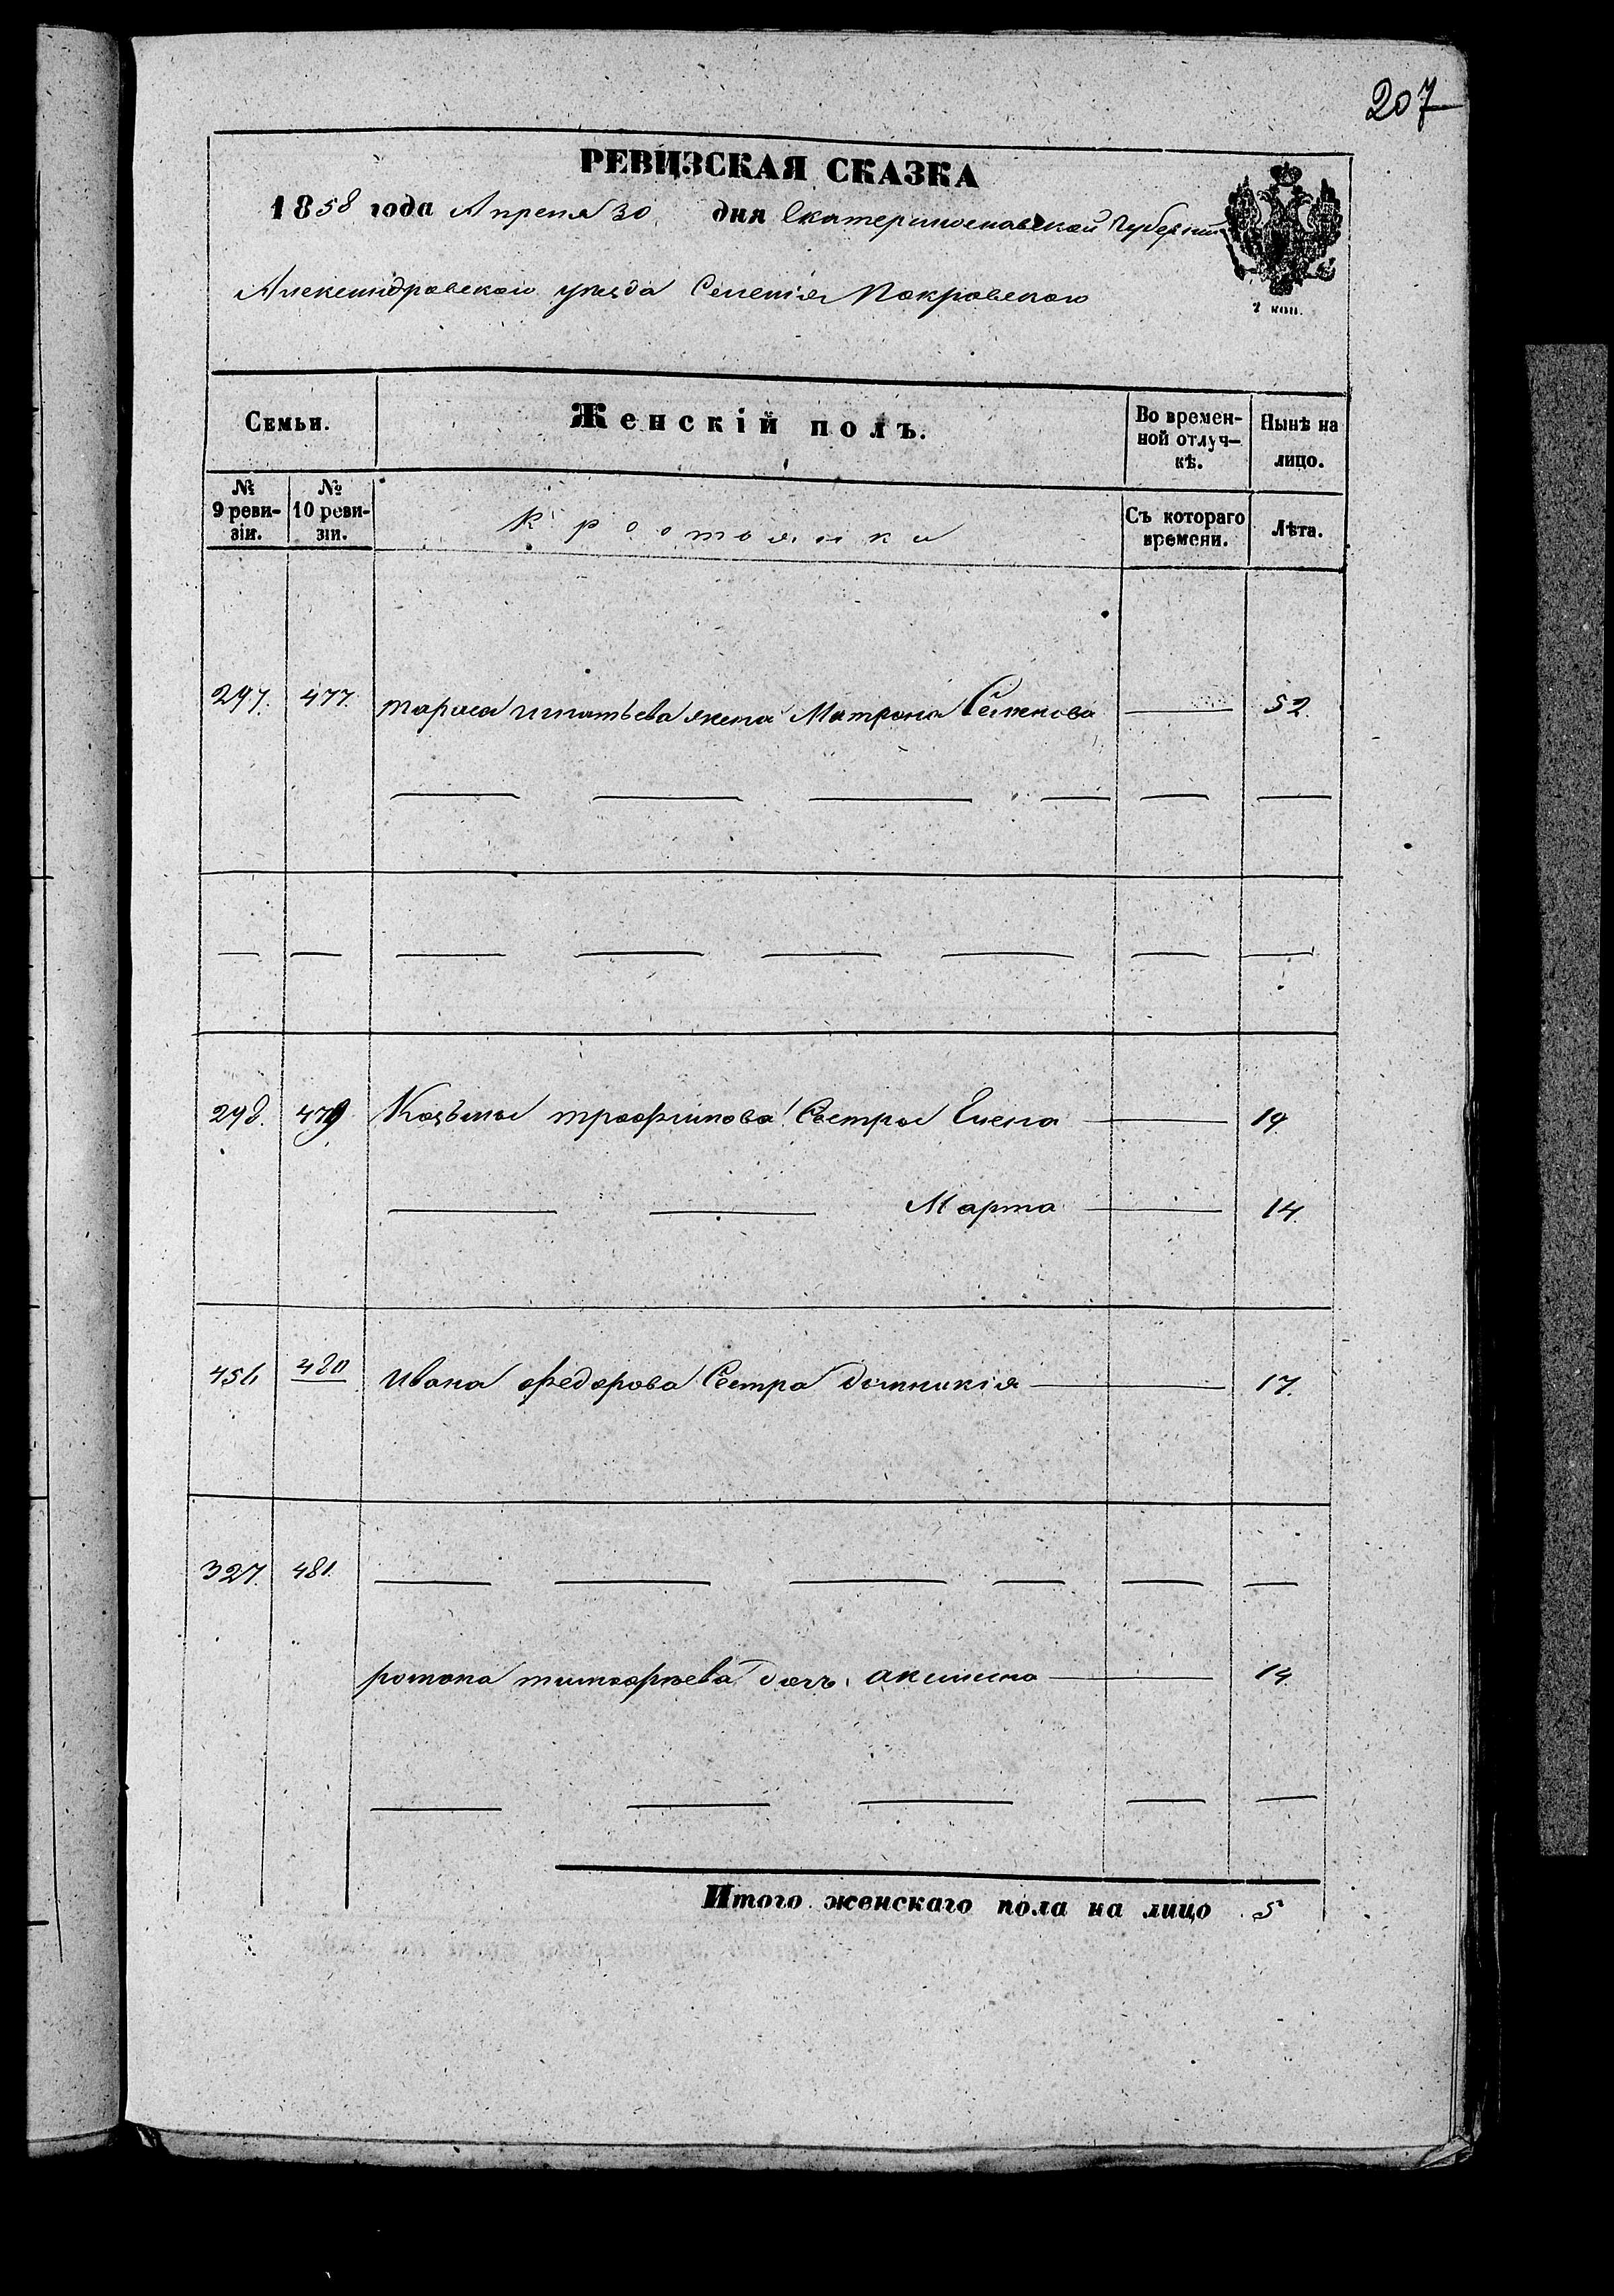 207
РЕВИЗСКАЯ СКАЗКА
1858 года Апреля 30 дня Екатеринославской Губернии
Александровскаго уезда Селенія Покровскаго
2 коп.
Семьи. Женскій полъ. Во времен-ной отлуч-кѣ. Нынѣ на лицо.
№ 9 реви-зіи. № 10 реви-зіи. Крестьянки Съ котораго времени. Лѣта.
297. 477. тараса игнатьева жена Матрона Семенова — 52.
298. 479 Козьмы трофимова Сестры Елена — 19
Марта — 14.
456 480 Ивана федорова Сестра домникія — 17.
327. 481.
романа тимофеева дочь аксинья — 14.
Итого женскаго пола на лицо 5